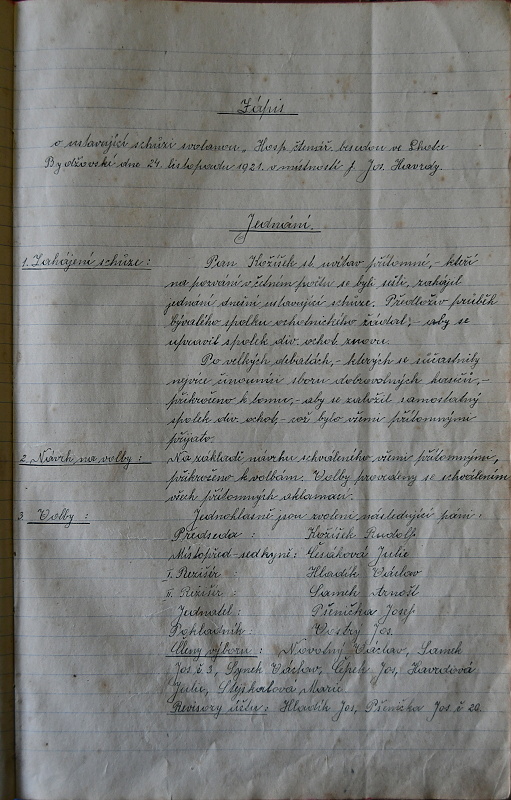 Zápis
o ustavující schůzi svolanou „Hosp. čtenář. besedou ve Lhotce
Bydžovské dne 24. listopadu 1921. v místnosti p. Jos. Havrdy.
Jednání.
1. Zahájení schůze: Pan Kožíšek st. uvítav přítomné, - kteří
na pozvání v četném počtu se byli sešli, zahájil
jednání dnešní ustavující schůze. Předloživ průběh
bývalého spolku ochotnického žádal; - aby se
upravil spolek div. ochot. znovu.
Po velkých debatách, - kterých se súčastnily
nejvíce členové sboru dobrovolných hasičů, -
přikročeno k tomu, - aby se založil samostatný
spolek div. ochot., což bylo všemi přítomnými
přijato.
2. Návrh na volby: Na základě návrhu schváleného všemi přítomnými,
přikročeno k volbám. Volby provedeny se schválením
všech přítomných aklamací.
3. Volby: Jednohlasně jsou zvoleni následující páni:
Předseda: Kožíšek Rudolf
Místopřed-sedkyně: Češáková Julie
I. Režisér: Hladík Václav
II. Režisér: Samek Arnošt
Jednatel: Pšenička Josef
Pokladník: Vostrý Jos.
Členy výboru: Novotný Václav, Samek
Jos. č. 3, Synek Václav, Čepek Jos, Havrdová
Julie, Stejskalová Marie
Revisory účtu: Hladík Jos, Pšenička Jos. č 20.